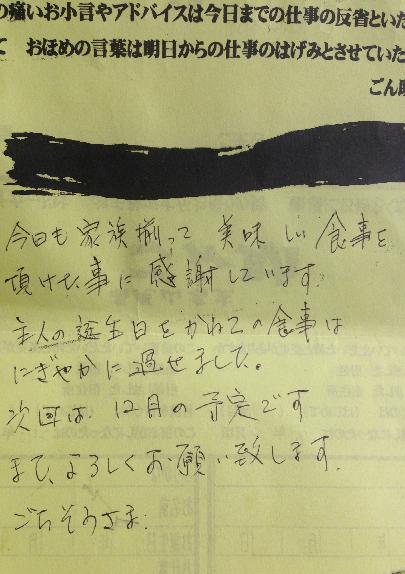 の痛いお小言やアドバイスは今日までの仕事の反省といた
て おほめの言葉は明日からの仕事のはげみとさせていた
ごん
今日も家族揃って 美味しい食事を
頂けた事に感謝しています。
主人の誕生日をかねての食事は
にぎやかに過せました。
次回は、12月の予定です
また、よろしくお願い致します。
ごちそうさま.